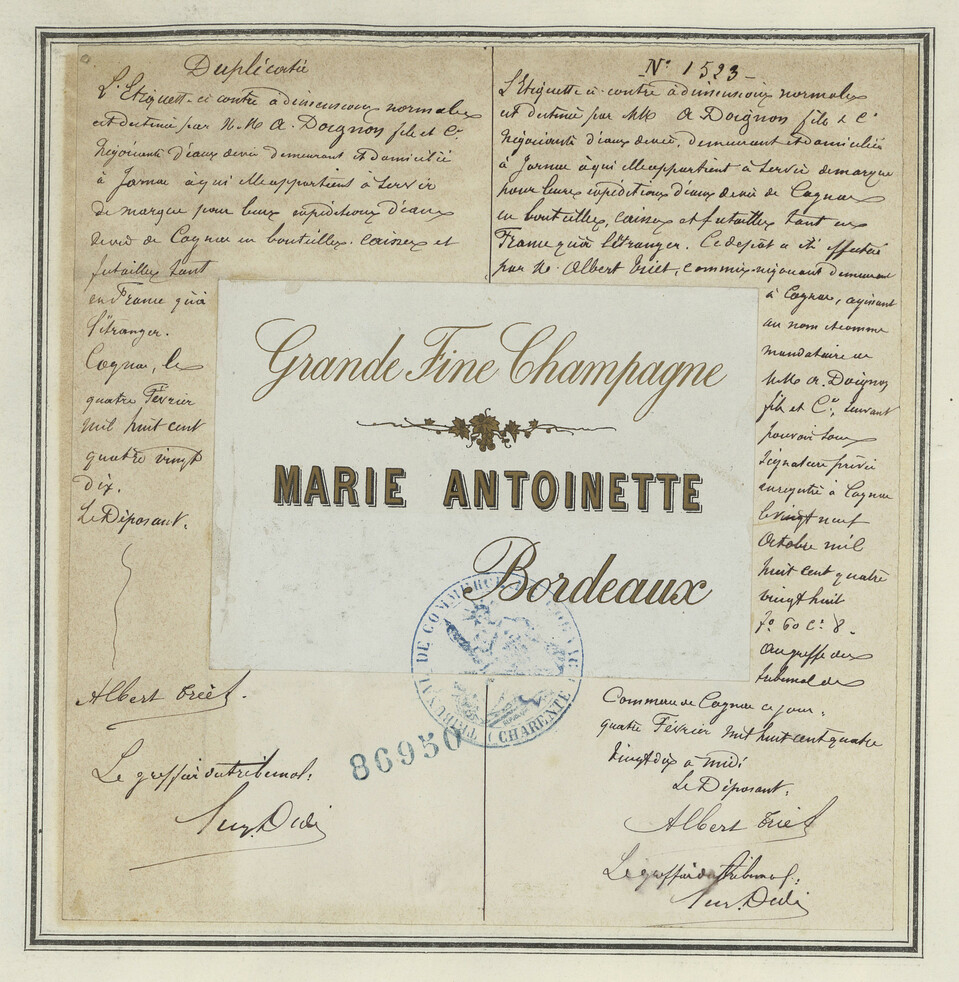 Duplicata
L'Etiquette ci contre à dimensions normales
est destiné par M.M. A. Doignon fils et Cie
Négociants d'eaux de vie demeurant et domiciliés
à Jarnac à qui elle appartient à servir
de marque pour leurs expéditions d'eaux
de vie de Cognac en bouteilles, caisses et
futailles tant
en France qu'à
l'étranger.
Cognac, le
quatre Février
mil huit cent
quatre vingt
dix.
Le Déposant:
Albert Triet.
Le greffier du tribunal:
N° 1523
L'Etiquette ci-contre à dimensions normales
est destiné par MM A Doignon fils & Cie
Négociants d'eaux de vie, demeurant et domiciliés
à Jarnac à qui elle appartient à servir de marque
pour leurs expéditions d'eaux de vie de Cognac
en bouteilles, caisses et futailles tant en
France qu'à l'étranger. Ce dépôt a été effectué
par M. Albert Triet, commis-négociant demeurant
à Cognac, agissant
au nom et comme
mandataire de
MM A. Doignon
fils et Cie, suivant
pouvoir sous
signature privée
enregistré à Cognac
le vingt neuf
Octobre mil
huit cent quatre
vingt huit
fo 60 Ce 8.
Au greffe du
tribunal de
Commerce de Cognac ce jour,
quatre Février mil huit cent quatre
vingt dix à midi
Le Déposant:
Albert Triet
Le greffier du tribunal:
Grande Fine Champagne
MARIE ANTOINETTE
Bordeaux
TRIBUNAL DE COMMERCE DE COGNAC
(CHARENTE)
86950